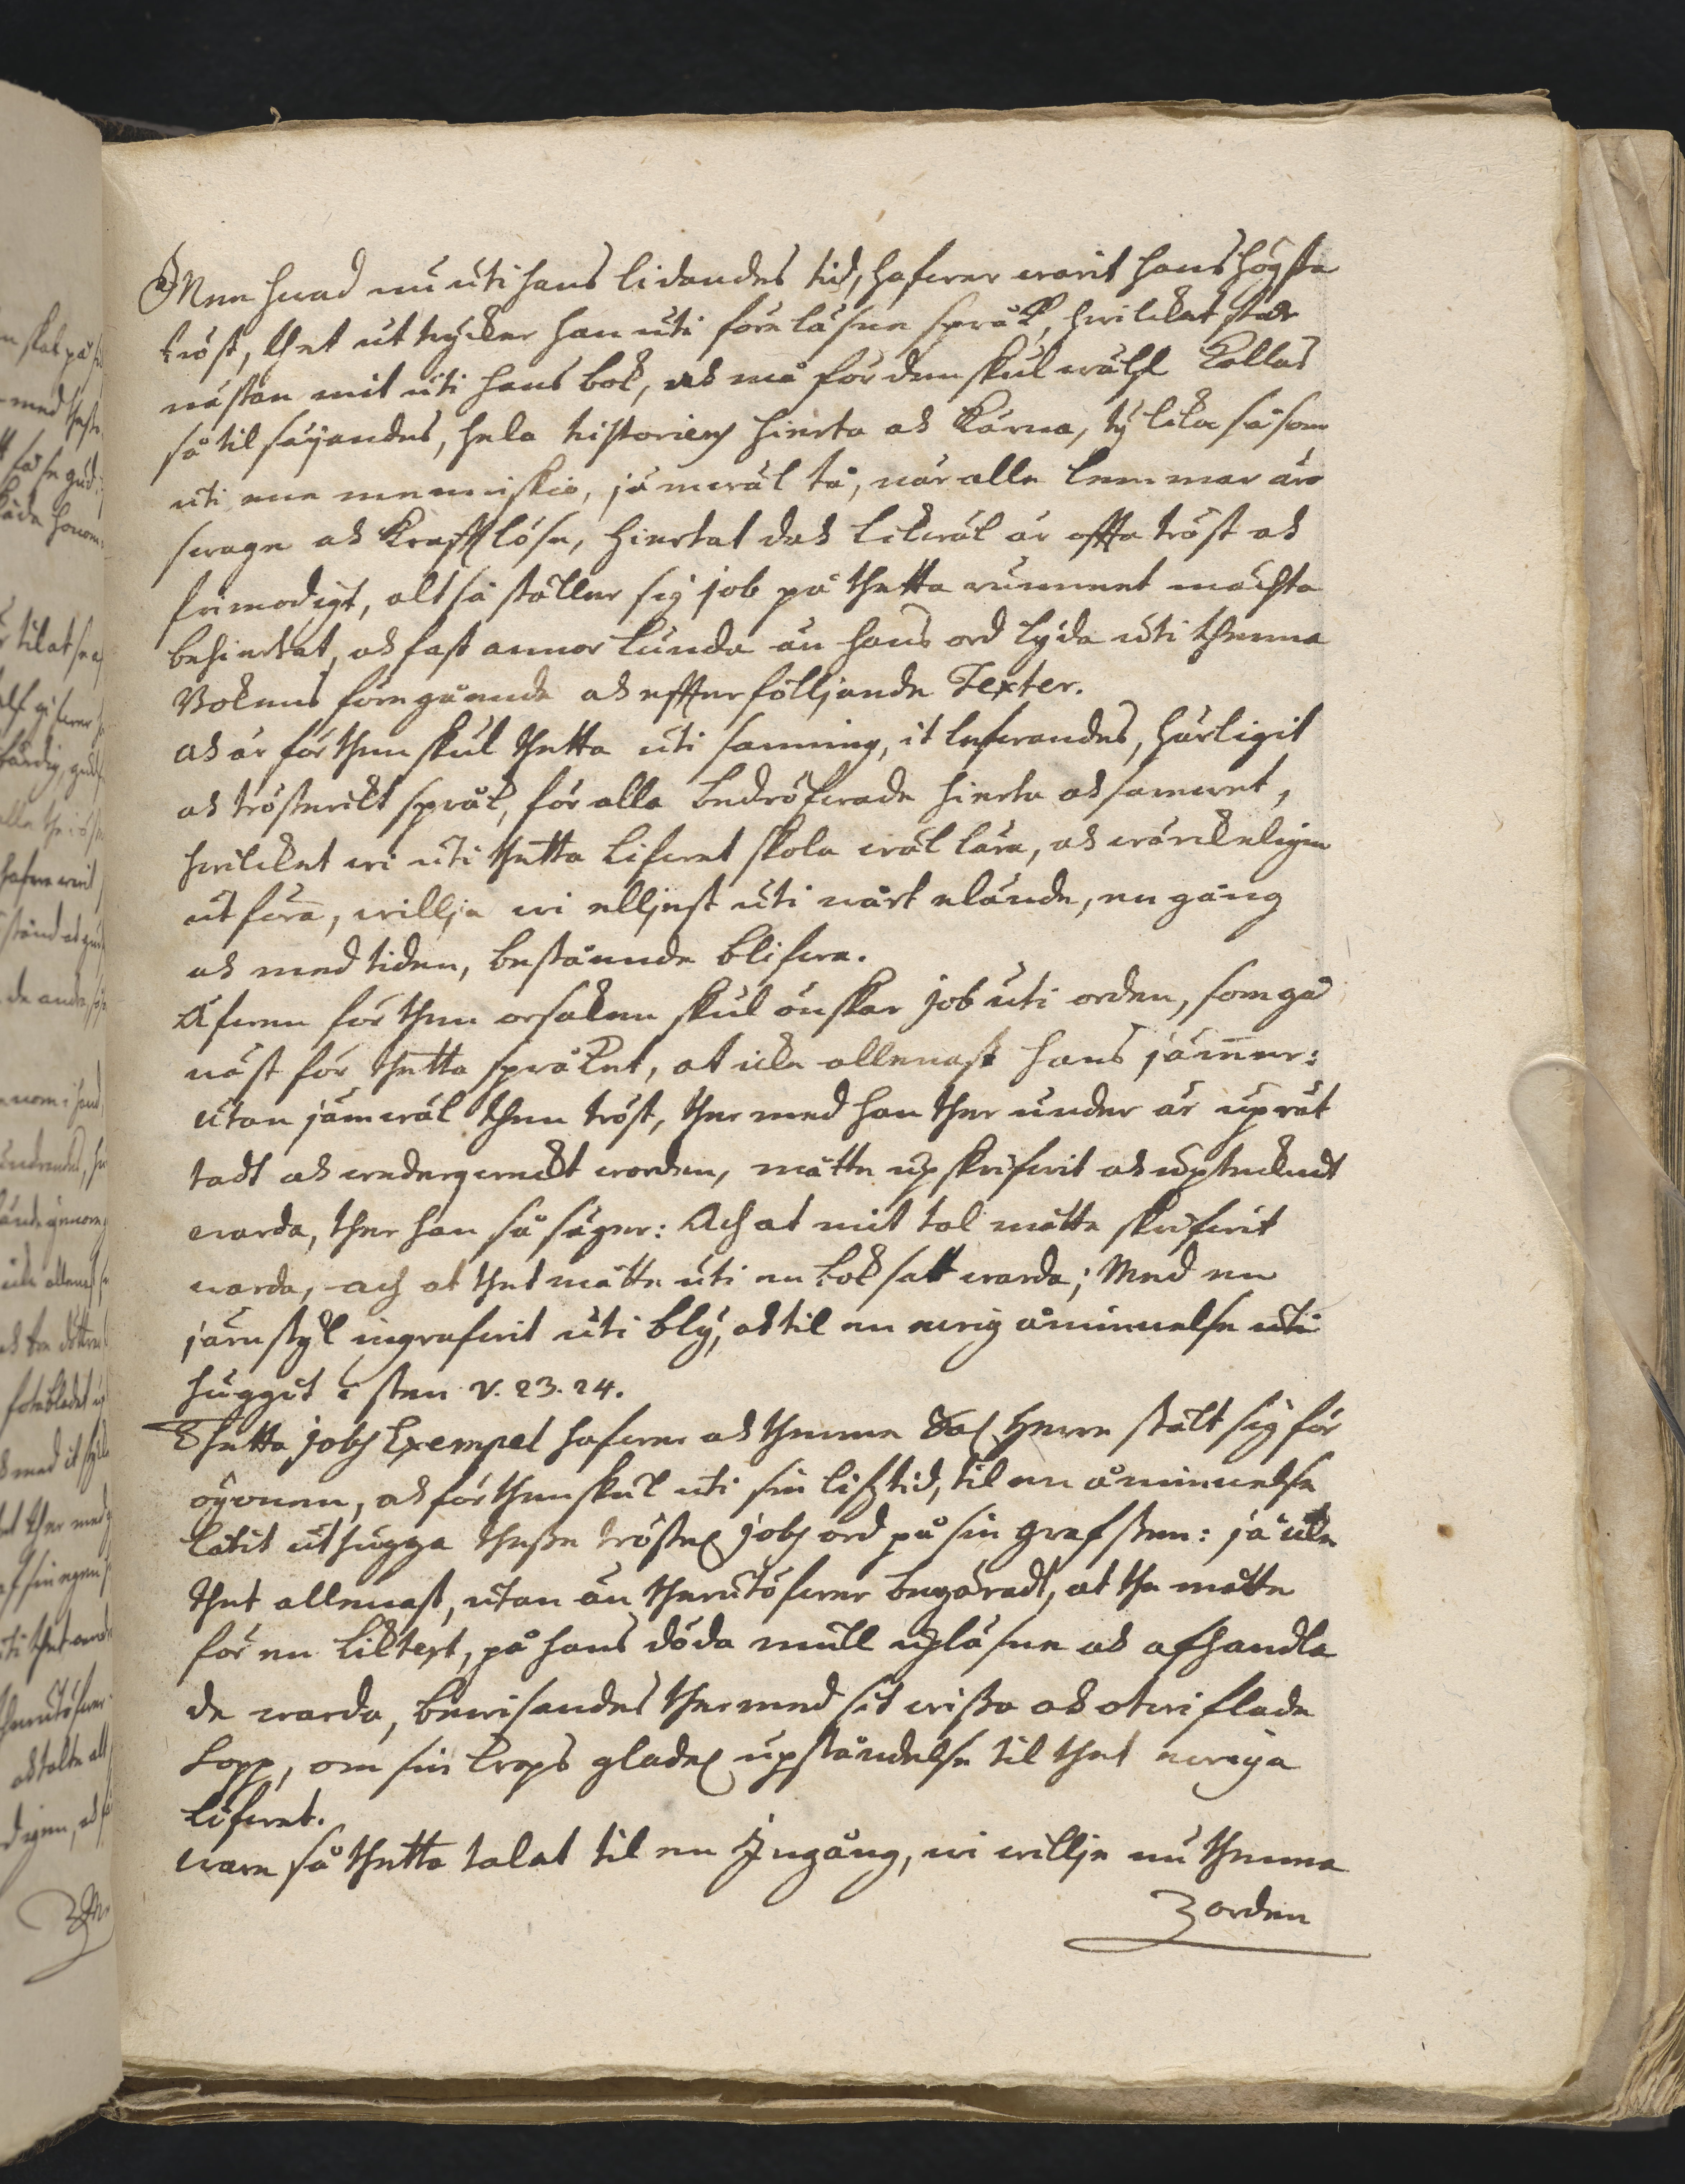 Men hwad nu uti hans lidandes tid, hafwer warit hans högsta
tröst, thet uttrycker han uti föreläsne språk, hwilcket står
nästan mit uti hans bok, ok må fördenskul wähl kallas
så til säyandes, hela historiens hierta ok kärna, ty lika såsom
uti ene menniskio, jämwäl tå, när alla lemmar äro
swage ok krafftlöse, hiertat dok likwäl är offta tröst ok
frimodigt, altså ställer sig job på thetta rummet mächta
behiertat, ok fast annorlunda än hans ord lyda uti thenna
Bokens föregåande ok effterfölljande Texter.
ok är för then skul thetta uti sanning, it lefwandes, härligit
ok trösterikt språk, för alla bedröfwade hierta ok samwet,
hwilcket wi uti thetta lifwet skola wäl lära, ok wärckeligen
utföra, willja wi elljest uti wårt elände, en gång
ok med tiden, bestående blifwa.
Äfwen för then orsaken skul önskar job uti orden, som gå
näst för thetta språket, at icke allenast hans jämmer:
utan jämwäl then tröst, ther med han ther under är uprät
tadt ok wederqweckt worden, måtte upskrifwit ok uptecknat
warda, ther han så säger: Ach at mit tal måtte skrifwit
warda, ach at thet måtte uti en bok satt warda; Med en
järnstyl ingrafwit uti bly, ok til en ewig åminnelse uti
huggit i sten v. 23. 24.
Thetta jobs Exempel hafwer ok thenne Sal. Herre stält sig för
ögonen, ok för then skul uti sin lifztid, til en åminnelse
låtit uthugga thesse tröstel. jobs ord på sin grafsten: ja icke
thet allenast, utan än therutöfwer begäradt, at the måtte
för en liktext, på hans döda mull uplästne ok afhandla
de warda, bewisandes ther med sit wissa ok otwiflade
hopp, om sin krops gladel. upståndelse til thet ewiga
lifwet.
ware så thetta talat til en Ingång, wi willje nu thenna
orden